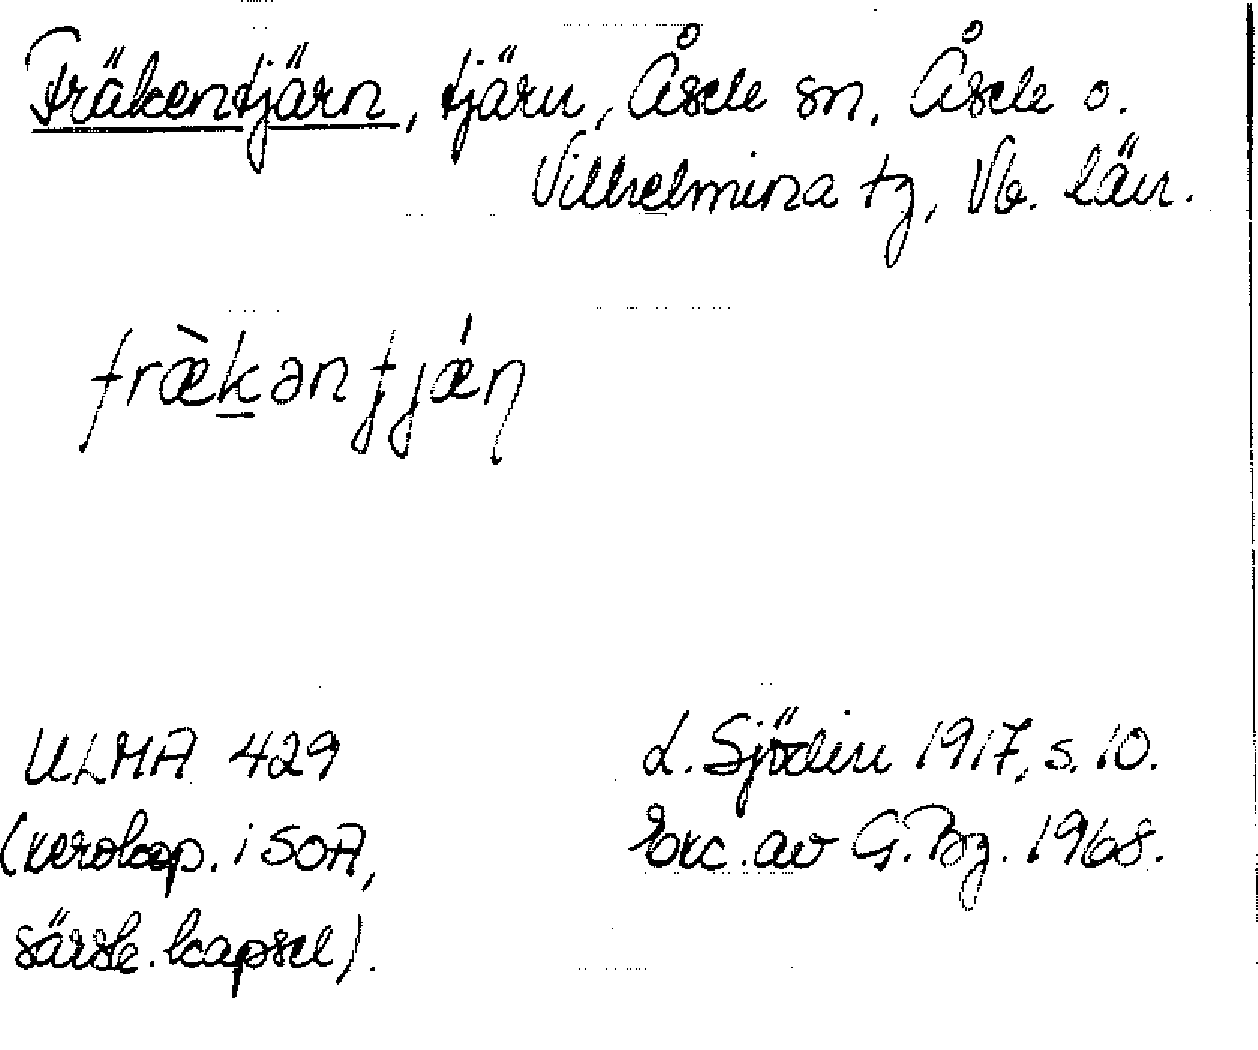 Fräkentjärn, tjärn, Åsele sn, Åsele o.
Vilhelmina tg, Vb. län.
fræ̀k̲ən tjǽn
ULMA 429
(xerokop. i SOA,
särsk. kapsel).
L. Sjödin 1917, s. 10.
Exc. av G. Bg. 1968.